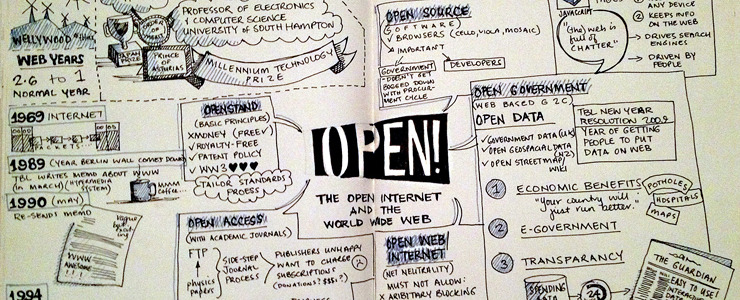 WELLYWOOD
WEB YEARS
2.6 to 1
NORMAL YEAR
PROFESSOR OF ELECTRONICS
& COMPUTER SCIENCE
UNIVERSITY of SOUTH HAMPTON
JAPAN PRIZE
PRINCE OF ASTURIAS
MILLENNIUM TECHNOLOGY
PRIZE
1969 INTERNET
PACKETS...
1989 (YEAR BERLIN WALL COMES DOWN)
TBL WRITES MEMO ABOUT WWW
(in MARCH) (HYPERMEDIA
SYSTEM)
MMM
1990 (MAY)
RE-SENDS MEMO
Vague
but
exciting
WWW
AWESOME
1994
OPENSTAND
(BASIC PRINCIPLES)
XMONEY (FREEV)
✓ ROYALTY-FREE
✓ PATENT POLICY
✓ WW3 ♥♥♥
TAILOR STANDARDS
PROCESS
OPEN ACCESS
(WITH ACADEMIC JOURNALS)
FTP
↑
physics
papers
SIDE-STEP
JOURNAL
PROCESS
PUBLISHERS UNHAPPY
WANT TO CHARGE
SUBSCRIPTIONS
(DONATIONS? $$$?)
OPEN!
THE OPEN INTERNET
AND THE
WORLD WIDE WEB
OPEN SOURCE
SOFTWARE)
x BROWSERS (CELLO, VIOLA, MOSAIC)
x IMPORTANT
GOVERNMENT
-DOESN'T GET
BOGGED DOWN
WITH PROCURE-
MENT CYCLE
DEVELOPERS
JAVASCRIPT
(the) web is
full of
CHATTER"
ANY DEVICE
② KEEPS INFO
ON THE WEB
→ DRIVES SEARCH
ENGINES
→ DRIVEN BY
PEOPLE
OPEN GOVERNMENT
(WEB BASED G2C)
OPEN DATA
✓ GOVERNMENT DATA (UK)
✓ OPEN GEOSPATIAL DATA
(NZ)
✓ OPEN STREETMAP
WIKI
TBL NEW YEAR
RESOLUTION 2009
YEAR OF GETTING
PEOPLE TO PUT
DATA ON WEB
1 ECONOMIC BENEFITS
"Your country will
just run better."
POTHOLES
HOSPITALS
MAPS
2 E-GOVERNMENT
3 TRANSPARENCY
SPENDING
DATA
24
THE GUARDIAN
EASY TO USE!
INTERACTIVE
OPEN WEB
INTERNET
(NET NEUTRALITY)
MUST NOT ALLOW:
X ARIBITARY BLOCKING